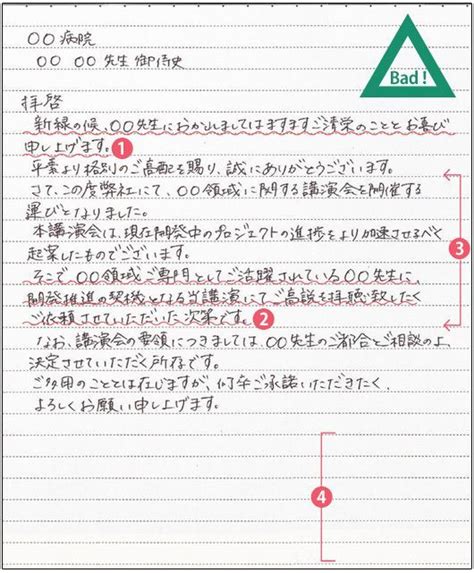 〇〇病院
〇〇 〇〇先生 御侍史
Bad!
拝啓
新緑の候、〇〇先生におかれましてはますますご清栄のこととお喜び
申し上げます。 1
平素より格別のご高配を賜り、誠にありがとうございます。
さて、この度弊社にて、〇〇領域に関する講演会を開催する
運びとなりました。
本講演会は、現在開発中のプロジェクトの進捗をより加速させるべく
起案したものでございます。
3
そこで〇〇領域ご専門としてご活躍されている〇〇先生に、
開発推進の契機となる当講演にてご高説を拝聴致したく
ご依頼させていただいた次第です。 2
なお、講演会の要領につきましては、〇〇先生のご都合とご相談の上、
決定させていただく所存です。
ご多用のこととは存じますが、何卒ご承諾いただきたく、
よろしくお願い申し上げます。
4